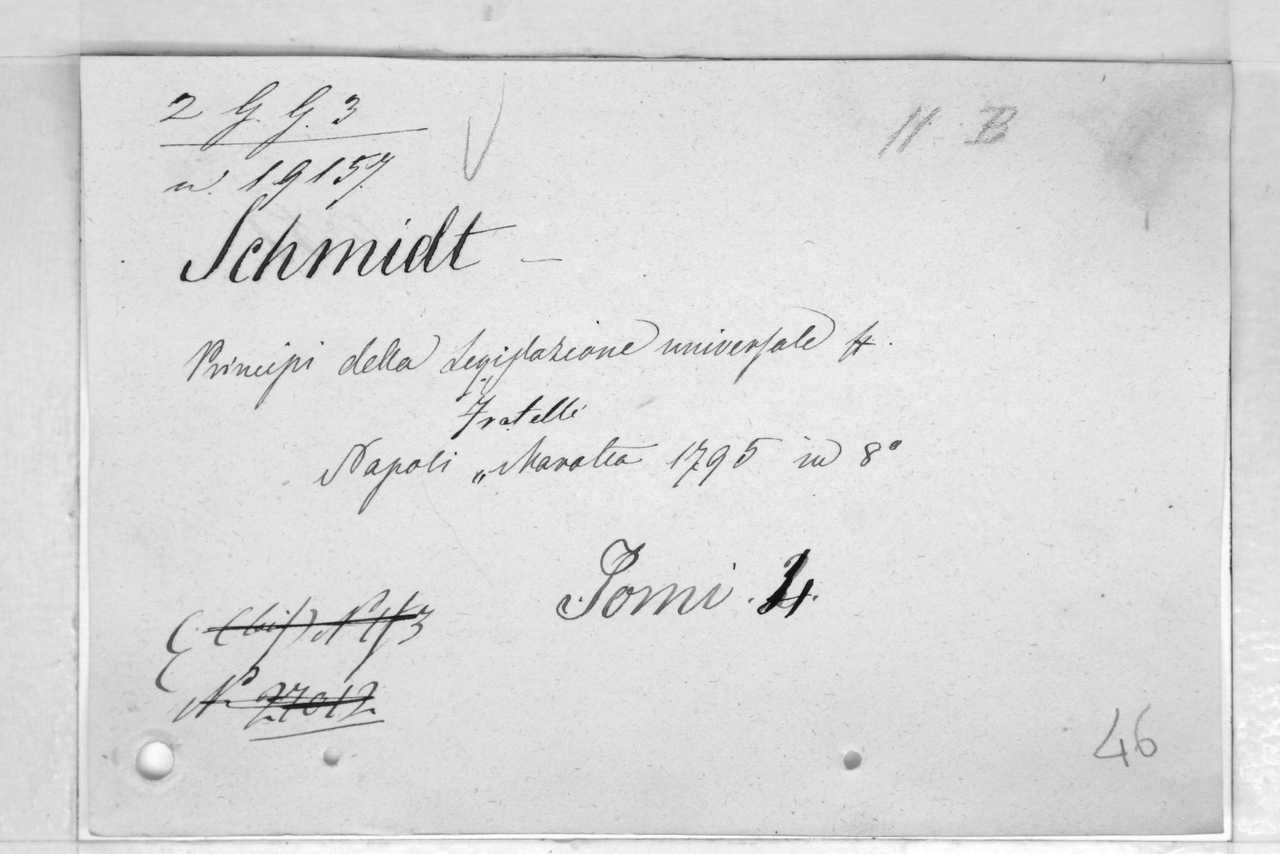 2 G. G. 3
N. B
n. 19157.
Schmidt —
Principi della Legislazione universale
Fratelli
Napoli „ Maratea 1795 in 8°
Tomi . 4.
(bis) N
N° 27012
46